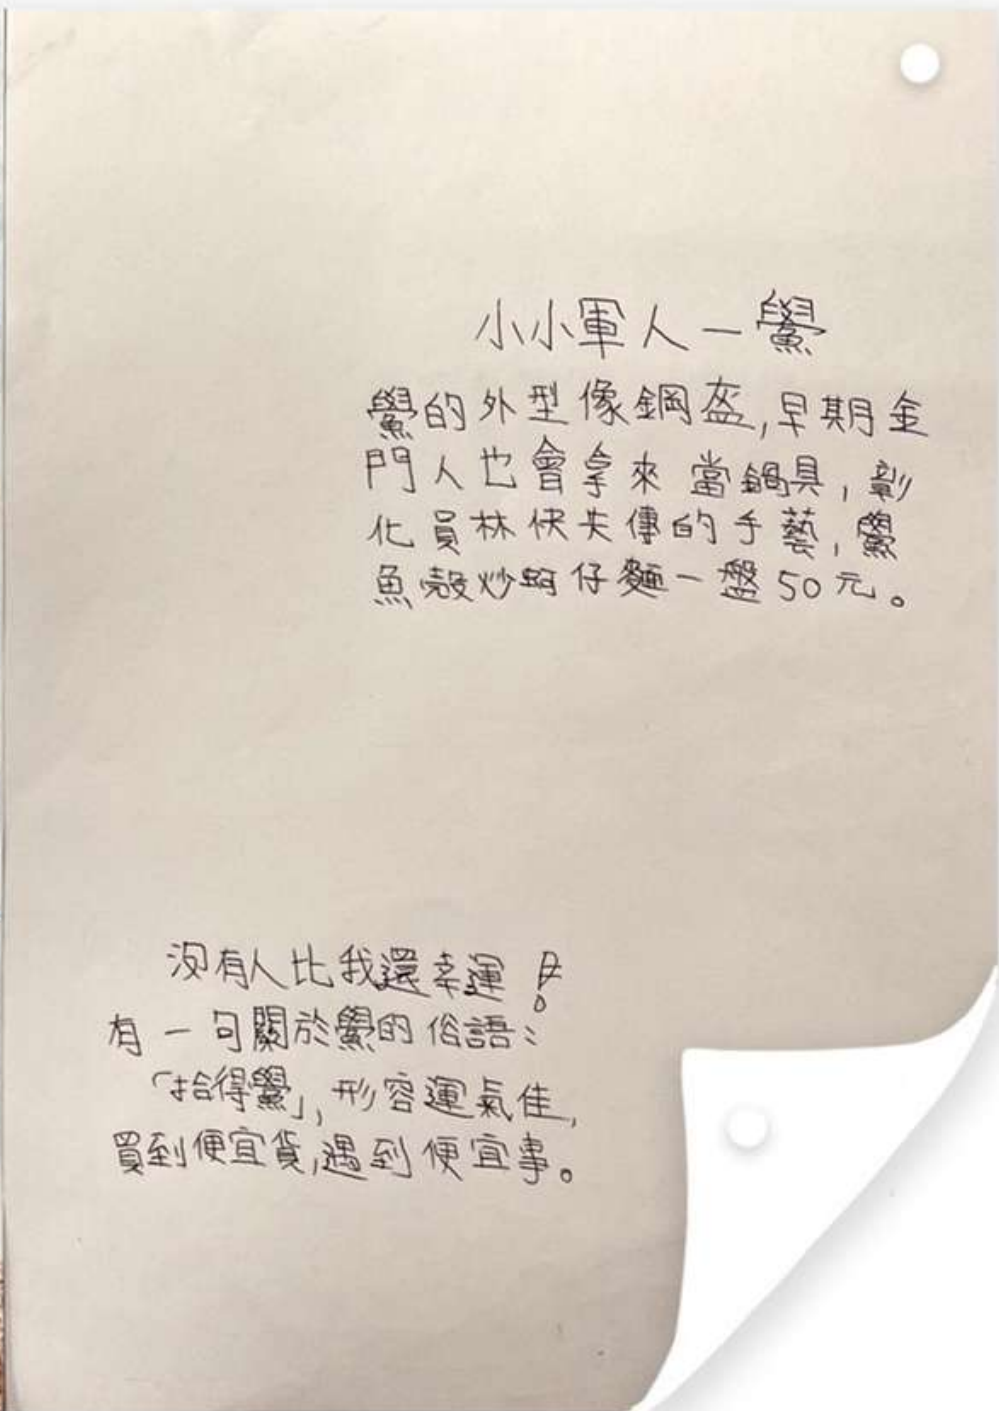 小小軍人－鱟
鱟的外型像鋼盔,早期金
門人也會拿來當鍋具,彰
化員林快失傳的手藝,鱟
魚殼炒蚵仔麵一盤50元。
沒有人比我還幸運!
有一句關於鱟的俗語:
「拾得鱟」,形容運氣佳,
買到便宜貨,遇到便宜事。